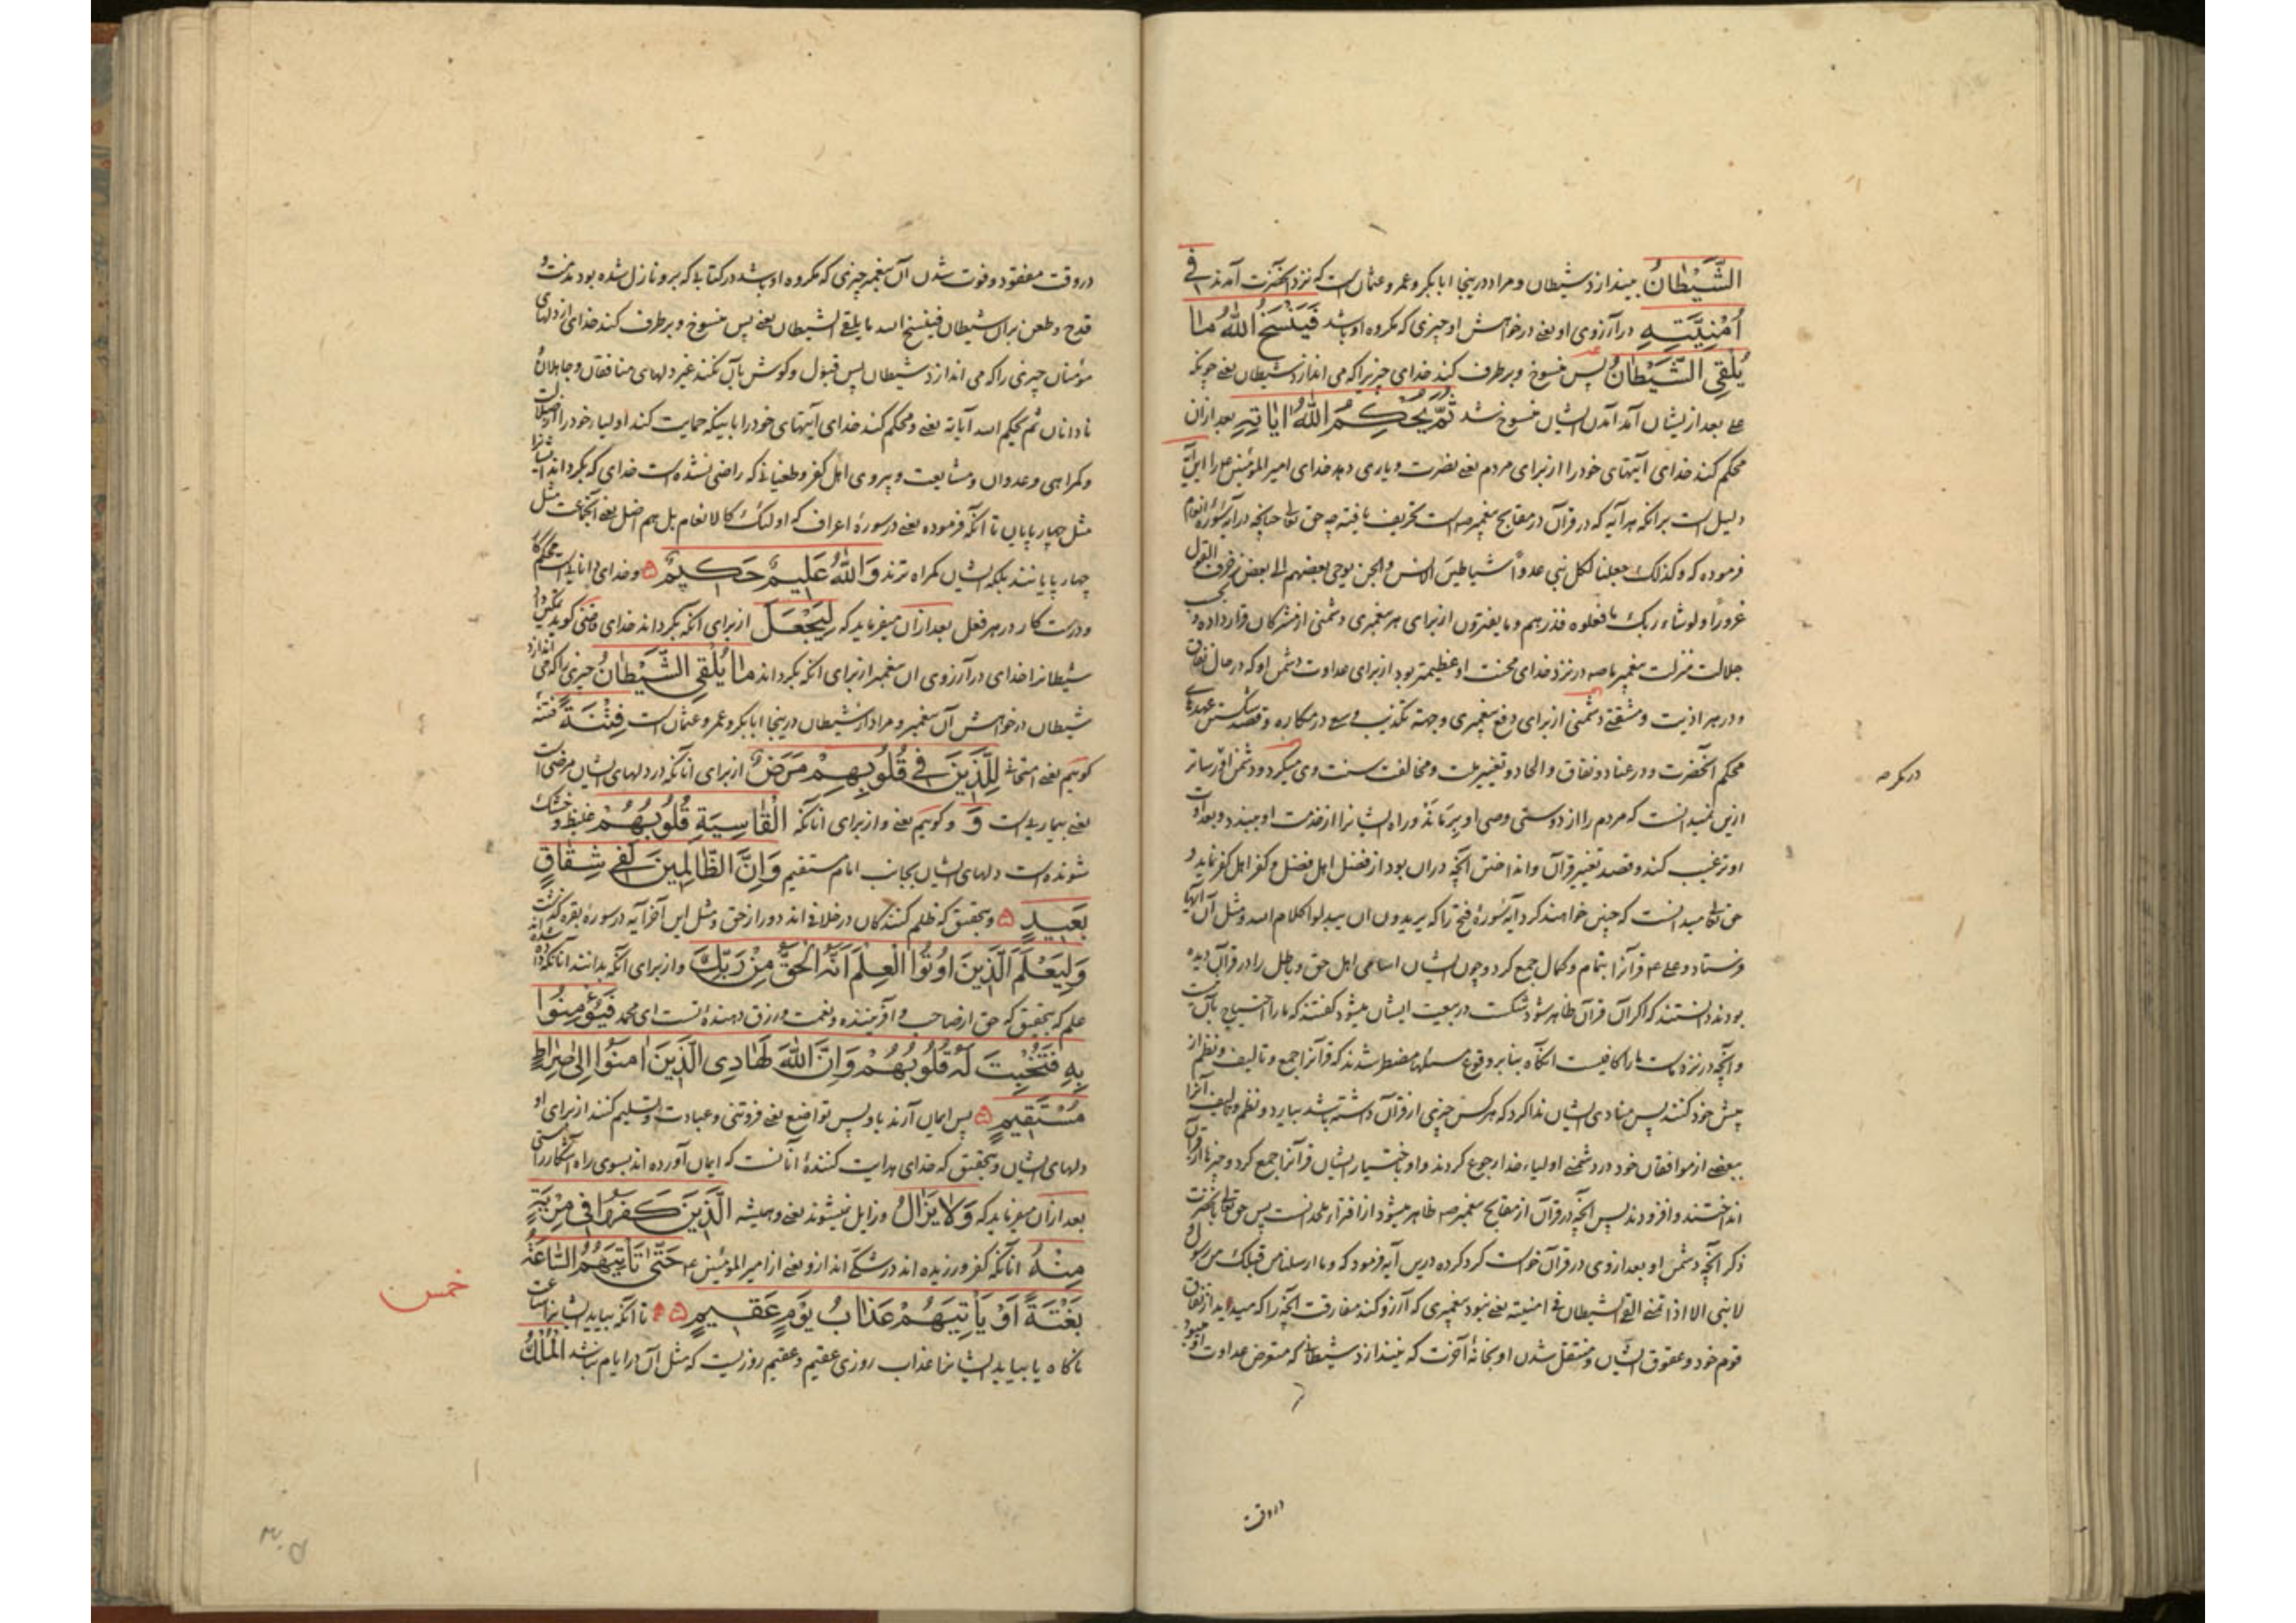 الشَّيْطَانُ بیندازد شیطان و مراد درینجا ابابکر و عمر و عثمان است که نزد آنحضرت آمدند فِي
أُمْنِيَّتِهِ در آرزوی او یعنے در خواهش او چیزی که مکروه او باشد فَيَنْسَخُ اللَّهُ مَا
يُلْقِي الشَّيْطَانُ پس منسوخ و برطرف کند خدای چیزیرا که می اندازد شیطان یعنے چونکه
علی بعد از یشان آمد آمدن ایشان منسوخ شد ثُمَّ يُحْكِمُ اللَّهُ آيَاتِهِ بعد ازان
محکم کند خدای آیتهای خود را از برای مردم یعنے نصرت و یاری دهد خدای امیر المؤمنین را این آیه
دلیل است برانکه هر آیه که در قرآن در مقابح پیغمبر صه است تحریف یافته چه حق تعالی چنانچه در سورهٔ انعام
فرموده که وکذلک جعلنا لکل نبی عدوا شیاطین الانس والجن یوحی بعضهم الی بعض زخرف القول
غرورا ولو شاء ربک ما فعلوه فذرهم وما یفترون از برای هر پیغمبری دشمنی از مشرکان قرار داده و
جلالت منزلت پیغمبر ما صه در نزد خدای محنت او عظیمتر بود از برای عداوت دشمن او که در حال نفاق
و در هر اذیت و مشقتے دشمنی از برای دفع پیغمبری و جهة تکذیب وی سعی در مکاره و قصد شکستن عهدهای
محکم آنحضرت و در عناد و نفاق و الحاد و تغییر ملت و مخالفت سنت وی میکرد و دشمن
ازین نمیدانست که مردم را از دوستی وصی او برماند و راه ایشانرا از خدمت او ببندد و بعداوت
او ترغیب کند و قصد تغییر قرآن و انداختن آنچه دران بود از فضل اهل فضل و کفر اهل کفر نماید و
حق تعالی میدانست که چنین خواهند کرد آیه سورهٔ فتح را که یریدون ان یبدلوا کلام الله و مثل آن آیها
فرستاد و علی ع قرآنرا بتمام و کمال جمع کرد و چون ایشان اسامی اهل حق و باطل را در قرآن دیده
بودند دانستند که اگر آن قرآن ظاهر شود شکست در بیعت ایشان میشود گفتند که ما را احتیاج بآن نیست
و آنچه در نزد ماست ما را کافیست آنگاه بنابر وقوع مسئلها مضطر شدند که قرآنرا جمع و تالیف و نظم از
پیش خود کنند پس منادی ایشان ندا کرد که هر کس چیزی از قرآن داشته باشد بیارد و نظم و تالیف آنرا
ببعضے از موافقان خود در دشمنے اولیاء خدا رجوع کردند و او باختیار ایشان قرآنرا جمع کرد و چیزها از قرآن
انداختند و افزودند پس آنچه در قرآن از مقابح پیغمبر صه ظاهر میشود از افتراء ملحدانست پس حق تعالی بآنحضرت
ذکر آنچه دشمن او بعد از وی در قرآن خواست کرد کرده درین آیه فرمود که وما ارسلنا من قبلک من رسول و
لا نبی الا اذا تمنے القے الشیطان فی امنیته یعنے نبود پیغمبری که آرزو کند مفارقت آنچه را که میدید از نفاق
قوم خود و عقوق ایشان و منتقل شدن او بخانهٔ آخرت که نیندازد شیطانی که متعرض عداوت او میبود
در مکر صه
در وقت
در وقت مفقود و فوت شدن آن پیغمبر چیزی که مکروه او باشد در کتابے که برو نازل شده بود مذمت و
قدح و طعن بران شیطان فینسخ الله ما یلقے الشیطان یعنے پس منسوخ و برطرف کند خدای از دلهای
مؤمنان چیزی را که می اندازد شیطان پس قبول و گوش بآن نکنند غیر دلهای منافقان و جاهلان و
نادانان ثم یحکم الله آیاته یعنے و محکم کند خدای آیتهای خود را بانیکه حمایت کند اولیاء خود را از ضلالت
و گمراهی و عدوان و مشایعت و پیروی اهل کفر و طغیانے که راضی نشده است خدای که بگرداند ایشانرا
مثل چهارپایان تا آنکه فرموده یعنے در سورهٔ اعراف که اولئک کالانعام بل هم اضل یعنے آنجماعت مثل
چهارپایانند بلکه ایشان گمراه ترند وَاللَّهُ عَلِيمٌ حَكِيمٌ ۵ و خدای دانای است محکم کار
و درست کار در هر فعل بعد ازان میفرماید که لِيَجْعَلَ از برای آنکه بگرداند خدای
شیطانرا خدای در آرزوی آن پیغمبر از برای آنکه بگرداند مَا يُلْقِي الشَّيْطَانُ چیزی را که می اندازد
شیطان در خواهش آن پیغمبر و مراد از شیطان درینجا ابابکر و عمر و عثمان است فِتْنَةً فتنه
گوئیم یعنے امتحانے لِلَّذِينَ فِي قُلُوبِهِمْ مَرَضٌ از برای آنانکه در دلهای ایشان مرضی است
یعنے بیماری است وَ و گوئیم یعنے و از برای آنانکه الْقَاسِيَةِ قُلُوبُهُمْ غلیظ و خشک
شونده است دلهای ایشان بجانب امام مستقیم وَإِنَّ الظَّالِمِينَ لَفِي شِقَاقٍ
بَعِيدٍ ۵ و بتحقیق که ظلم کنندگان در خلافے اند دور از حق و مثل این آخر آیه در سورهٔ بقره گذشت
وَلِيَعْلَمَ الَّذِينَ أُوتُوا الْعِلْمَ أَنَّهُ الْحَقُّ مِنْ رَبِّكَ و از برای آنکه بدانند آنانکه داده شده اند
علم که بتحقیق که حق از صاحب و آفریننده و نعمت و رزق دهندهٔ تست ای محمد فَيُؤْمِنُوا
بِهِ فَتُخْبِتَ لَهُ قُلُوبُهُمْ وَإِنَّ اللَّهَ لَهَادِي الَّذِينَ آمَنُوا إِلَى صِرَاطٍ
مُسْتَقِيمٍ ۵ پس ایمان آرند باو پس تواضع یعنے فروتنی و عبادت و تسلیم کنند از برای او
دلهای ایشان و بتحقیق که خدای هدایت کنندهٔ آنانست که ایمان آورده اند بسوی راه آشکار راستی
بعد ازان میفرماید که وَلَا يَزَالُ و زایل نمیشوند یعنے و همیشه الَّذِينَ كَفَرُوا فِي مِرْيَةٍ
مِنْهُ آنانکه کفر ورزیده اند در شکے اند ازو یعنے از امیر المؤمنین ع حَتَّى تَأْتِيَهُمُ السَّاعَةُ
بَغْتَةً أَوْ يَأْتِيَهُمْ عَذَابُ يَوْمٍ عَقِيمٍ ۵ تا آنکه بیاید ایشانرا ساعت
ناگاه یا بیاید ایشانرا عذاب روزی عقیم و عقیم روزیست که مثل آن در ایام نباشد الْمُلْكُ
خمس